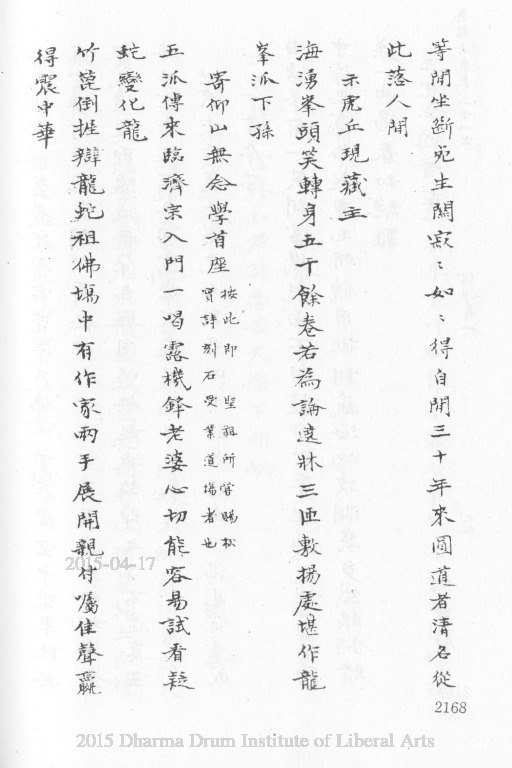 等閒坐斷死生關寂〻如〻得自閒三十年來圓道者清名從
此落人間
示虎丘現藏主
海湧峯頭笑轉身五千餘卷若為論遶牀三匝敷揚處堪作龍
峯派下孫
寄仰山無念學首座
按此即聖祖所嘗賜松
實詩刻石受業道場者也
五派傳來臨濟宗入門一喝露機鋒老婆心切能容易試看疑
蛇變化龍
竹篦倒握辯龍蛇祖佛場中有作家兩手展開親付囑佳聲贏
得震中華
2168
2015-04-17
2015 Dharma Drum Institute of Liberal Arts